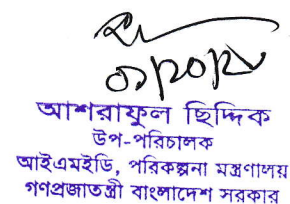 আশরাফুল ছিদ্দিক
উপ-পরিচালক
আইএমইডি, পরিকল্পনা মন্ত্রণালয়
গণপ্রজাতন্ত্রী বাংলাদেশ সরকার